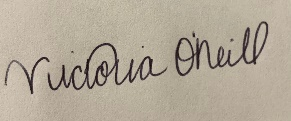 Victoria O'Neill